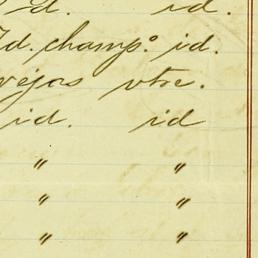 id. id.
Id. champ.º id.
vejas vtre.
id. id
" "
" "
" "